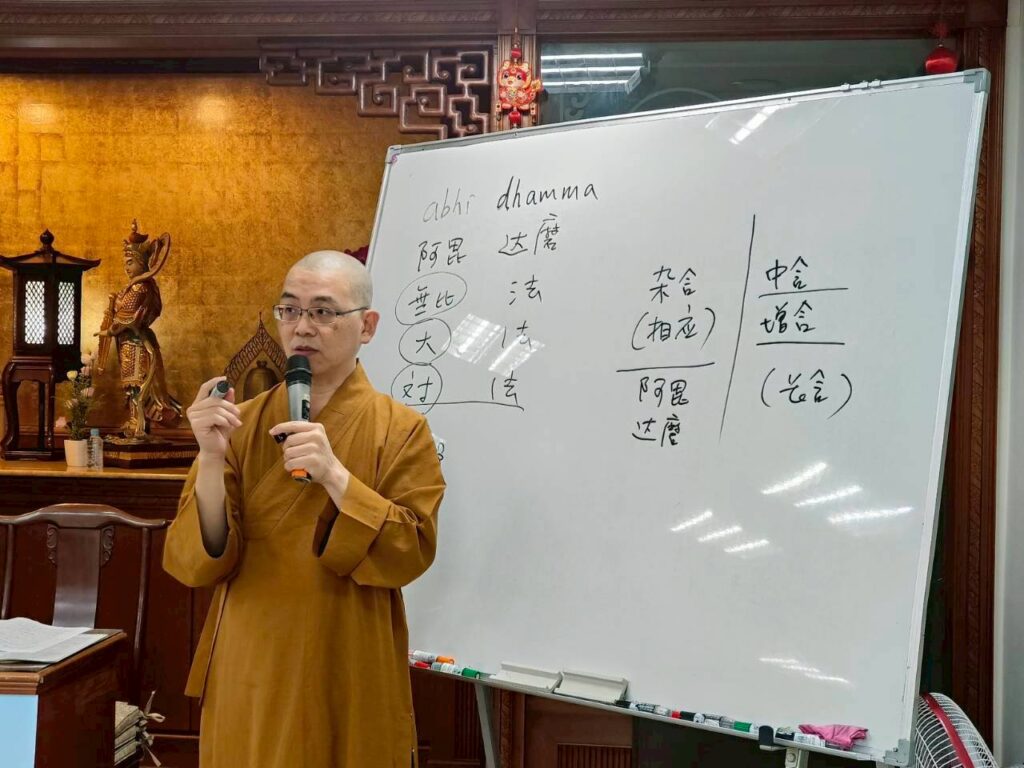 abhi dhamma
阿毘 达磨
無比 法
大 法
对 法
杂含
(相应)
阿毘
达磨
中含
增含
(长含)